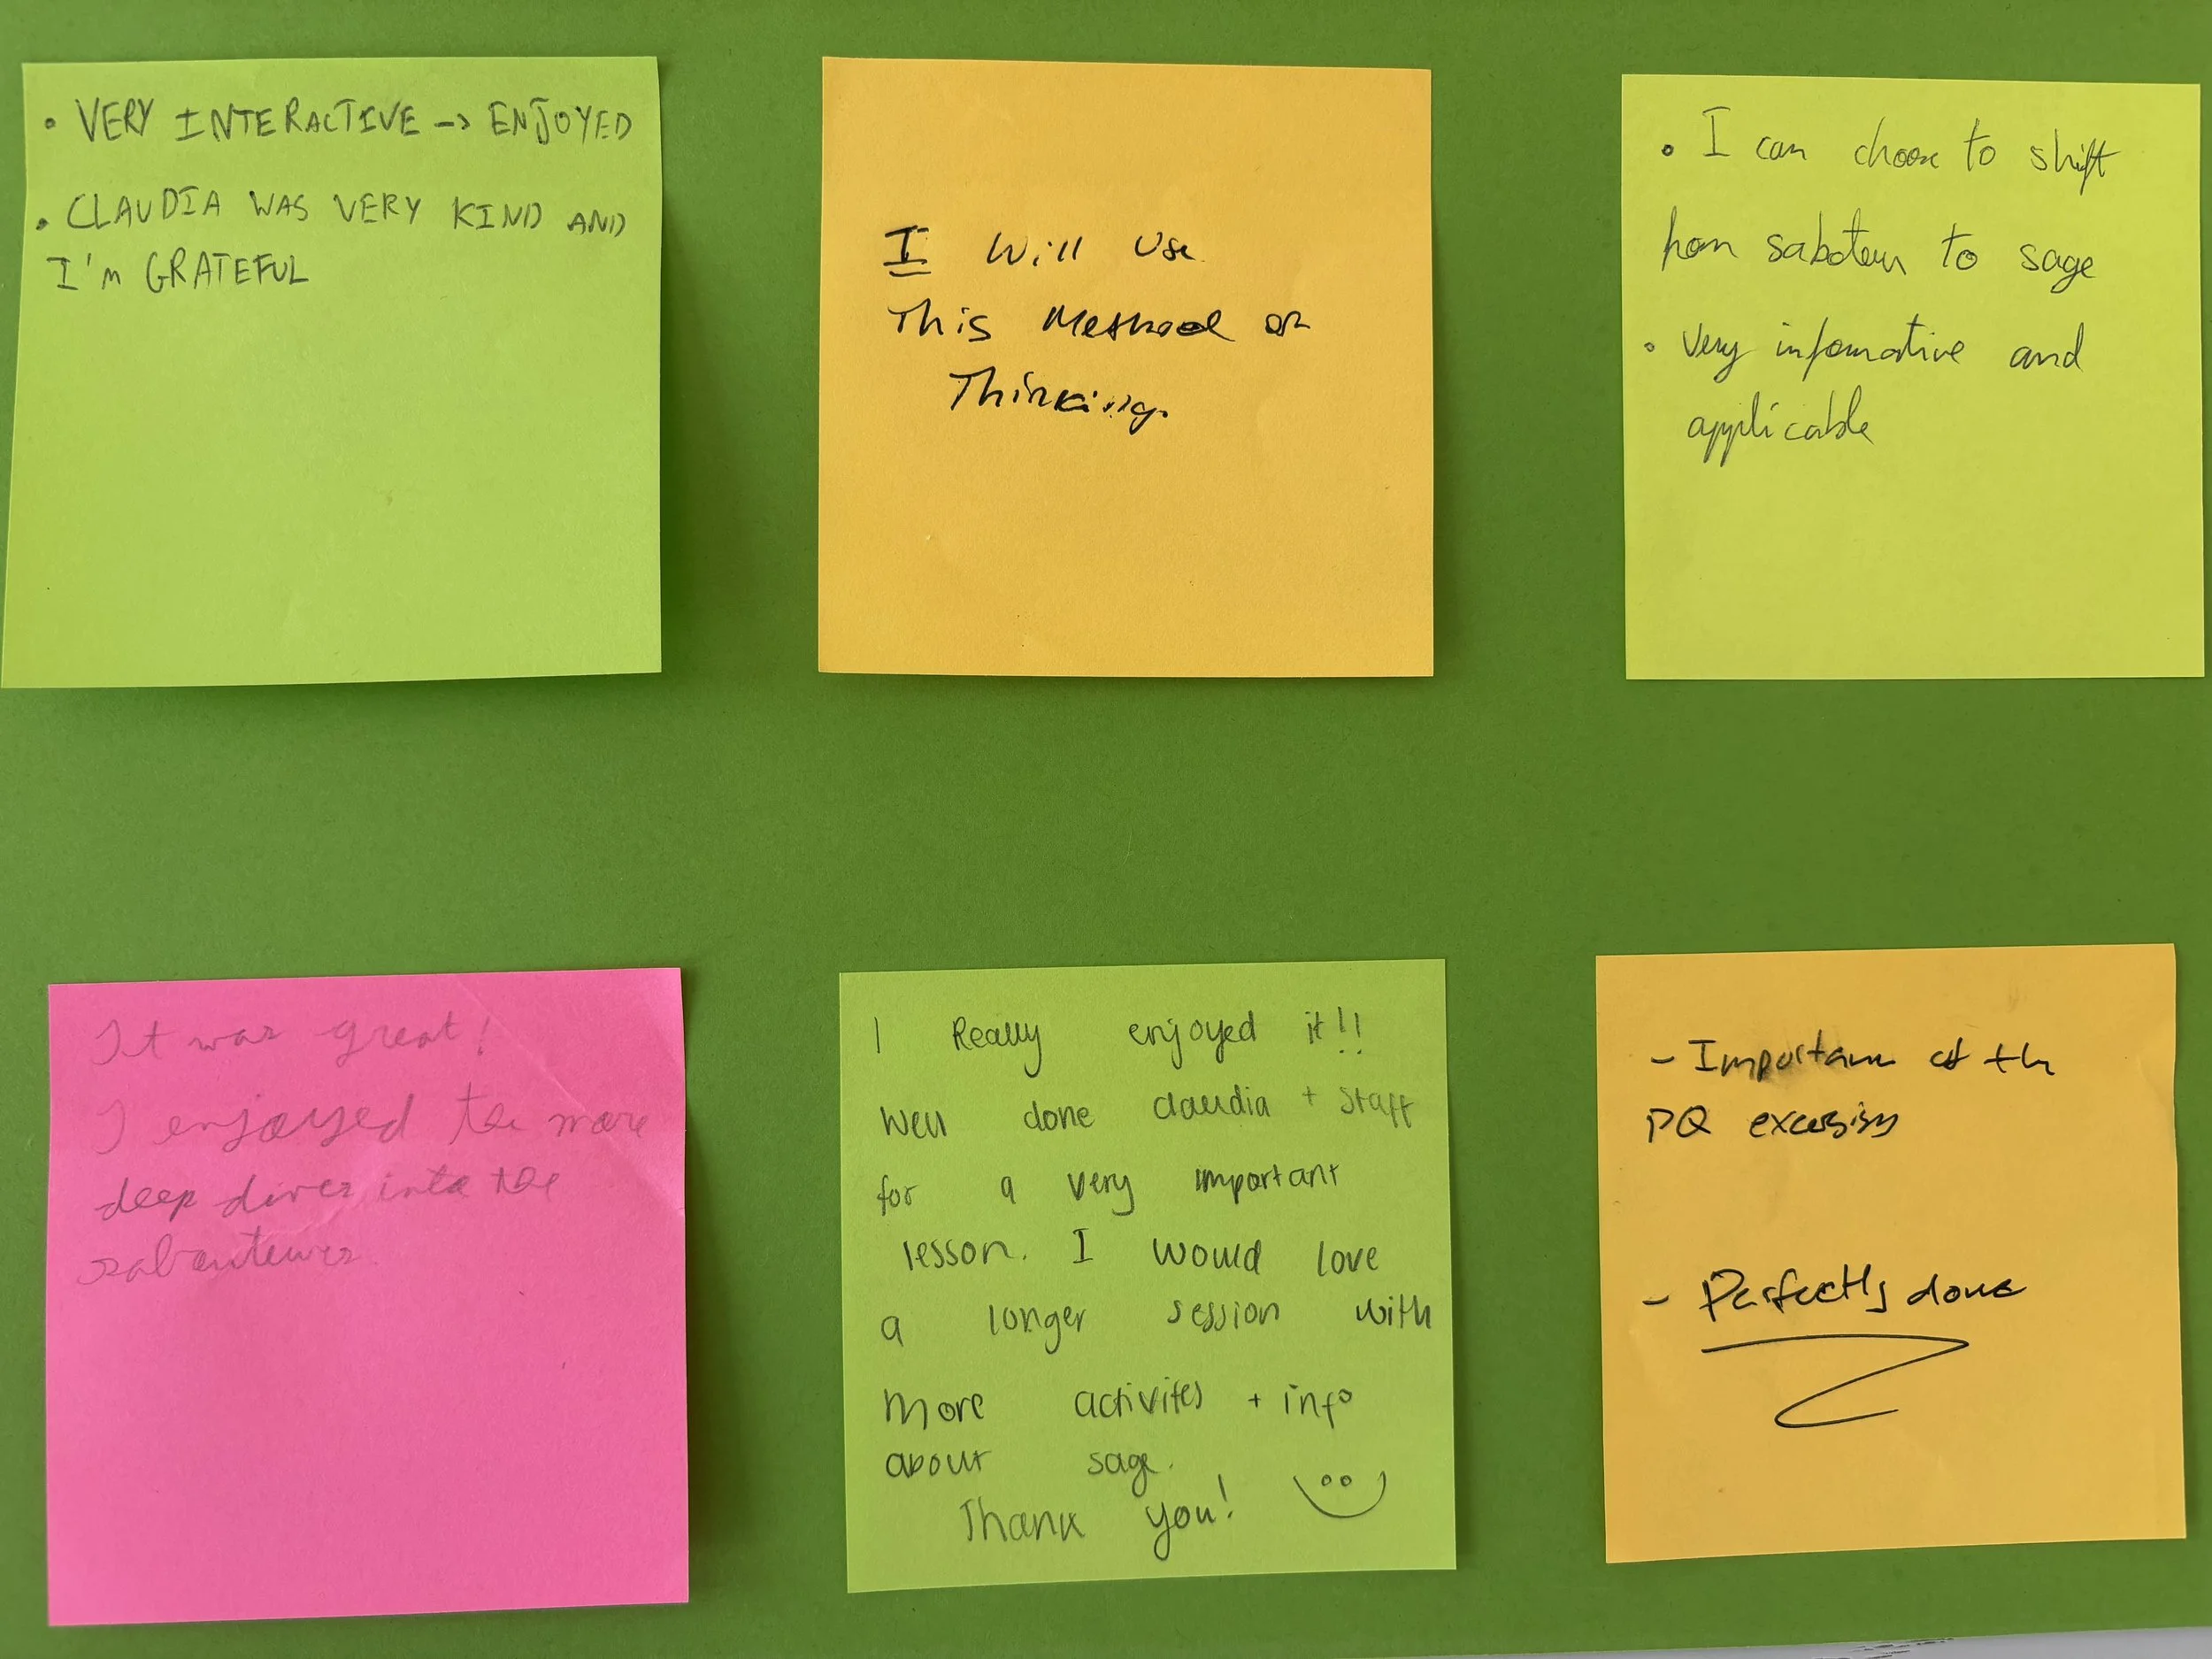 • VERY INTERACTIVE -> ENJOYED
• CLAUDIA WAS VERY KIND AND
I'm GRATEFUL
I Will Use
This Method of
Thinking.
• I can choose to shift
from saboteur to sage
• Very informative and
applicable
It was great!
I enjoyed the more
deep dives into the
I Really enjoyed it!!
Well done claudia + staff
for a very important
lesson. I would love
a longer session with
More activites + info
about sage.
Thank you!
- Importance of the
PQ
- Perfectly done